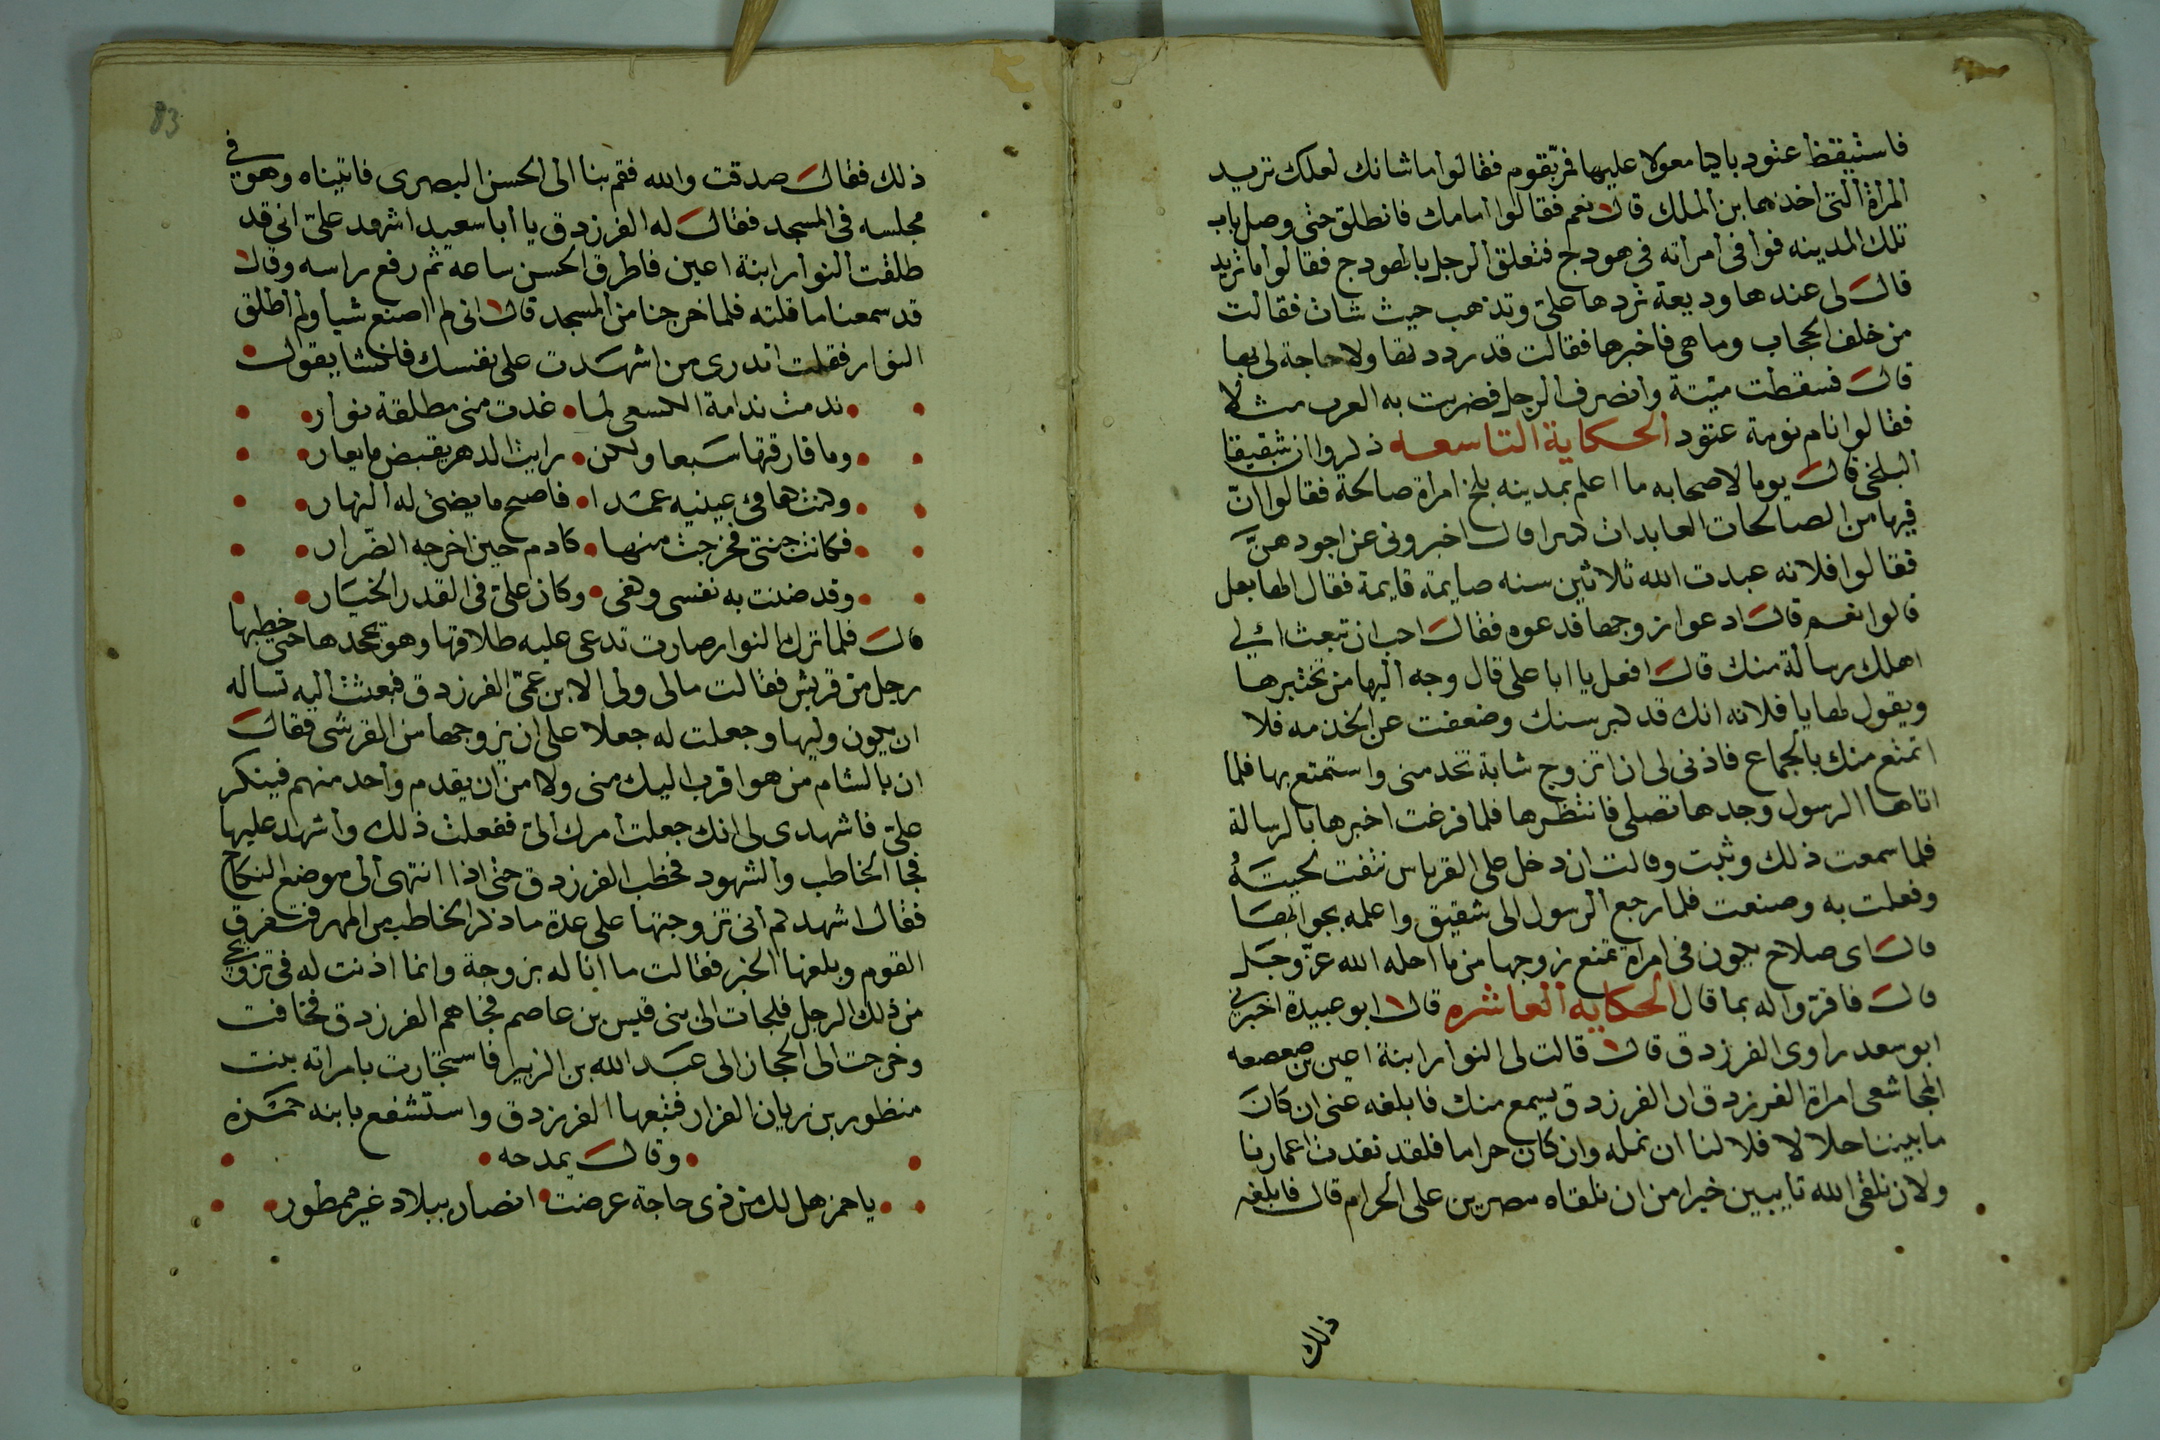 فاستيقظ عنود باكيا معولا عليها فمر بقوم فقالوا ما شانك لعلك تريد
المراة التي اخذها بن الملك قال نعم فقالوا امامك فانطلق حتى وصل باب
تلك المدينه فوافى امراته في هودج فتعلق الرجل بالهودج فقالوا ما تريد
قال لى عندها وديعة تردها على وتذهب حيث شات فقالت
من خلف الحجاب وما هى فاخبرها فقالت قد رددتها ولا حاجة لى بها
قال فسقطت ميتة وانصرف الرجل فضربت به العرب مثلا
فقالوا نام نومة عنود الحكاية التاسعه ذكروا ان شقيقا
البلخى قال يوما لاصحابه ما اعلم بمدينه بلخ امراة صالحة فقالوا ان
فيها من الصالحات العابدات كثيرا قال اخبرونى عن اجودهن
فقالوا فلانه عبدت الله ثلاثين سنه صايمة قايمة فقال الها بعل
قالوا نعم قال ادعوا زوجها فدعوه فقال احب ان تبعث الى
اهلك رسالة منك قال افعل يا ابا على قال وجه اليها من تختبرها
ويقول لها يا فلانه انك قد كبر سنك وضعفت عن الخدمه فلا
اتمتع منك بالجماع فاذنى لى ان اتزوج شابة تخدمنى واستمتع بها فلما
اتاها الرسول وجدها تصلى فانتظرها فلما فرغت اخبرها بالرسالة
فلما سمعت ذلك وثبت وقالت ان دخل على القرباس نتفت لحيته
وفعلت به وصنعت فلما رجع الرسول الى شقيق واعلمه بجوابها
قال اى صلاح يكون فى امراة تمنع زوجها من ما احله الله عز وجل
قال فاقروا له بما قال الحكايه العاشره قال ابو عبيدة اخبرنى
ابو سعد راوى الفرزدق قال قالت لى النوار ابنة اعين بن صعصعه
المجاشعى امراة الفرزدق ان الفرزدق يسمع منك فابلغه عنى ان كان
ما بيننا حلالا فلا لنا ان نمله وان كان حراما فلقد نفدت اعمارنا
ولان نلقى الله تايبين خير من ان نلقاه مصرين على الحرام قال فابلغه
ذلك
83
ذلك فقال صدقت والله فقم بنا الى الحسن البصرى فاتيناه وهو فى
مجلسه فى المسجد فقال له الفرزدق يا أبا سعيد اشهد على انى قد
طلقت النوار ابنة اعين فاطرق الحسن ساعة ثم رفع راسه وقال
قد سمعنا ما قلته فلما خرجنا من المسجد قال انى لم اصنع شيا ولم أطلق
النوار فقلت اتدرى من اشهدت على نفسك فانشا يقول
ندمت ندامة الكسعى لما غدت منى مطلقة نوار
وما فارقتها سبعا ولكن رايت الدهر يقبض ما يعار
وكنت كفاقئ عينيه عمدا فاصبح ما يضئ له النهار
فكانت جنتى فخرجت منها كادم حين اخرجه الضرار
وقد ضنت به نفسى وكفى وكان على فى القدر الخيار
قال فلما ترك النوار صارت تدعى عليه طلاقها وهو يجحدها حتى خطبها
رجل من قريش فقالت مالى ولى الا بن عمى الفرزدق فبعثت اليه تساله
ان يكون وليها وجعلت له جعلا على ان يزوجها من القرشى فقال
ان بالشام من هو اقرب اليك منى ولا امن ان يقدم واحد منهم فينكر
على فاشهدى لى انك جعلت أمرك الى ففعلت ذلك وأشهد عليها
فجا الخاطب والشهود فخطب الفرزدق حتى اذا انتهى الى موضع النكاح
فقال اشهدكم أنى تزوجتها على عدة ما ذكر الخاطب من المهر فتفرق
القوم وبلغها الخبر فقالت ما انا له بزوجة وانما اذنت له فى تزويجى
من ذلك الرجل فلجات الى بنى قيس بن عاصم فجاهم الفرزدق فخافت
وخرجت الى الحجاز الى عبد الله بن الزبير فاستجارت بامراته بنت
منظور بن زيان الفزار فتبعها الفرزدق واستشفع بابنه حمزه
وقال يمدحه
يا حمز هل لك من ذى حاجة عرضت انصار ببلاد غير ممطور